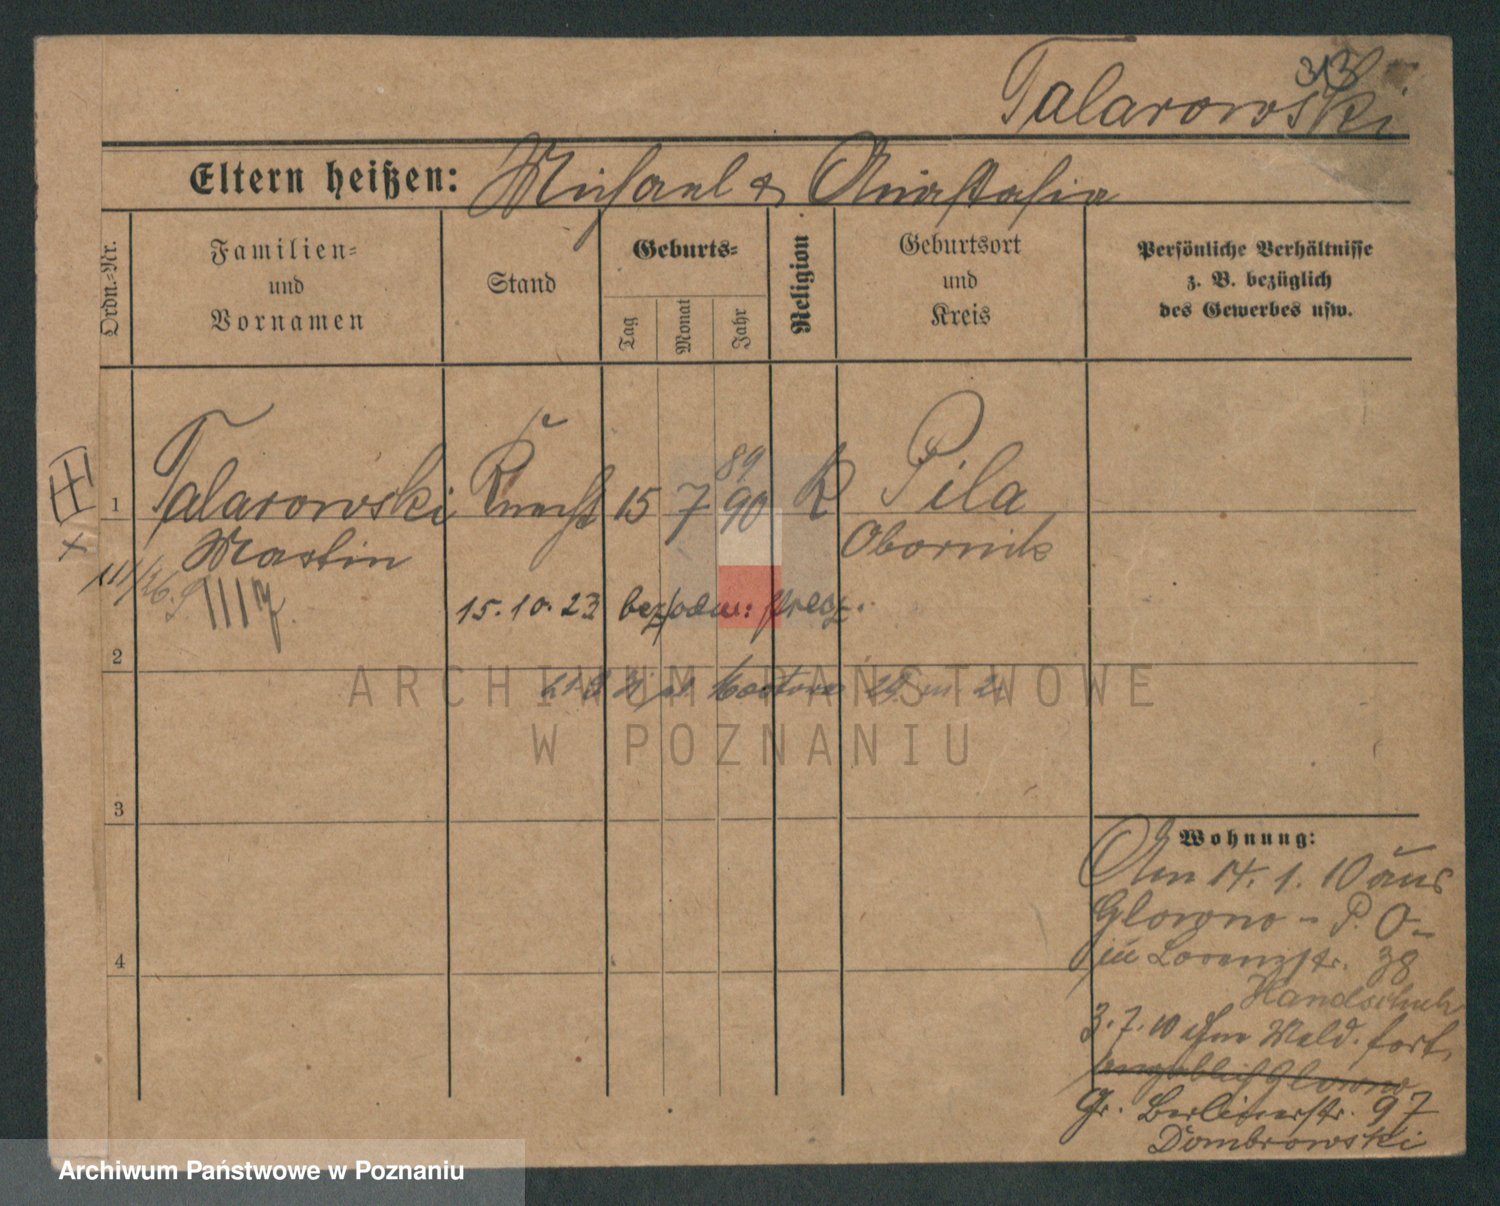 313
Talarowski
Eltern heißen: Michael & Anastasia
Ordn.-Nr.
Familien-
und
Vornamen
Stand
Geburts-
Tag
Monat
Jahr
Religion
Geburtsort
und
Kreis
Persönliche Verhältnisse
z. B. bezüglich
des Gewerbes usw.
89
1 Talarowski Knecht 15 7 90 K Pila
Martin Obornik
15.10.23
2
3
4
Wohnung:
Am 14. 1. 10 aus
Glowno - P. O-
in Lorenzstr. 38
Handschuh
3. 7. 10 ohne Meld. fort,
angeblich Glowno
Gr. Berlinerstr. 97
Dombrowski
ARCHIWUM PAŃSTWOWE
W POZNANIU
Archiwum Państwowe w Poznaniu